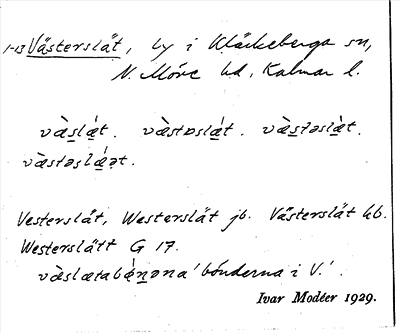 1-13 Västerslät, by i Kläckeberga sn,
N. Möre hd, Kalmar l.
và̠slǽt. və̀stəslǽt. və̀s̠təslæ̀t.
væ̀stəslǽət.
Vesterslät, Westerslät jb. Västerslät kb.
Westerslätt G 17.
væ̀slætabǿn̠əna 'bönderna i V.'.
Ivar Modéer 1929.